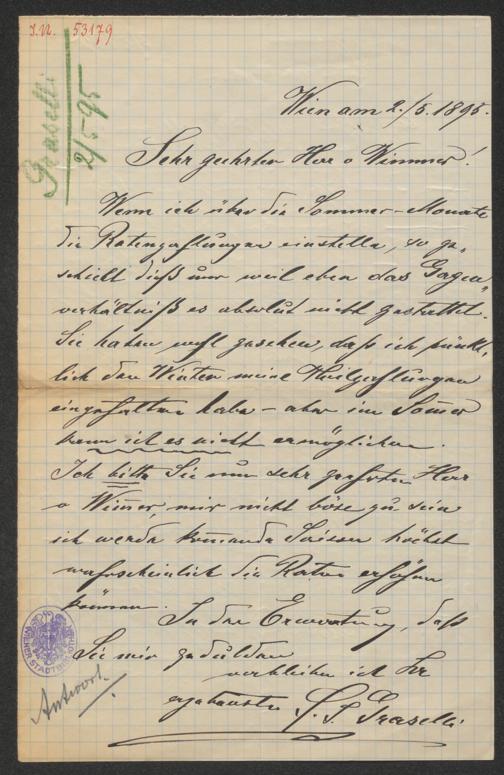 I.N. 53179
Graselli
2/5-95
Wien am 2./5. 1895.
Sehr geehrter Herr v Wimmer!
Wenn ich über die Sommer-Monate
die Ratenzahlungen einstelle, so ge„
schieht dieß nur weil eben das Gagen„
verhältniß es absolut nicht gestattet.
Sie haben wohl gesehen, daß ich pünkt„
lich den Winter meine Theilzahlungen
eingehalten habe – aber im Som̅er
kann ich es nicht ermöglichen.
Ich bitte Sie nun sehr geehrter Herr
v Wim̅er, mir nicht böse zu sein
ich werde kom̅ende Saison höchst
wahrscheinlich die Raten erhöhen
können.
In der Erwartung, daß
Sie mir gedulden
verbleibe ich Ihr
ergebenster
Graselli
Antwort.